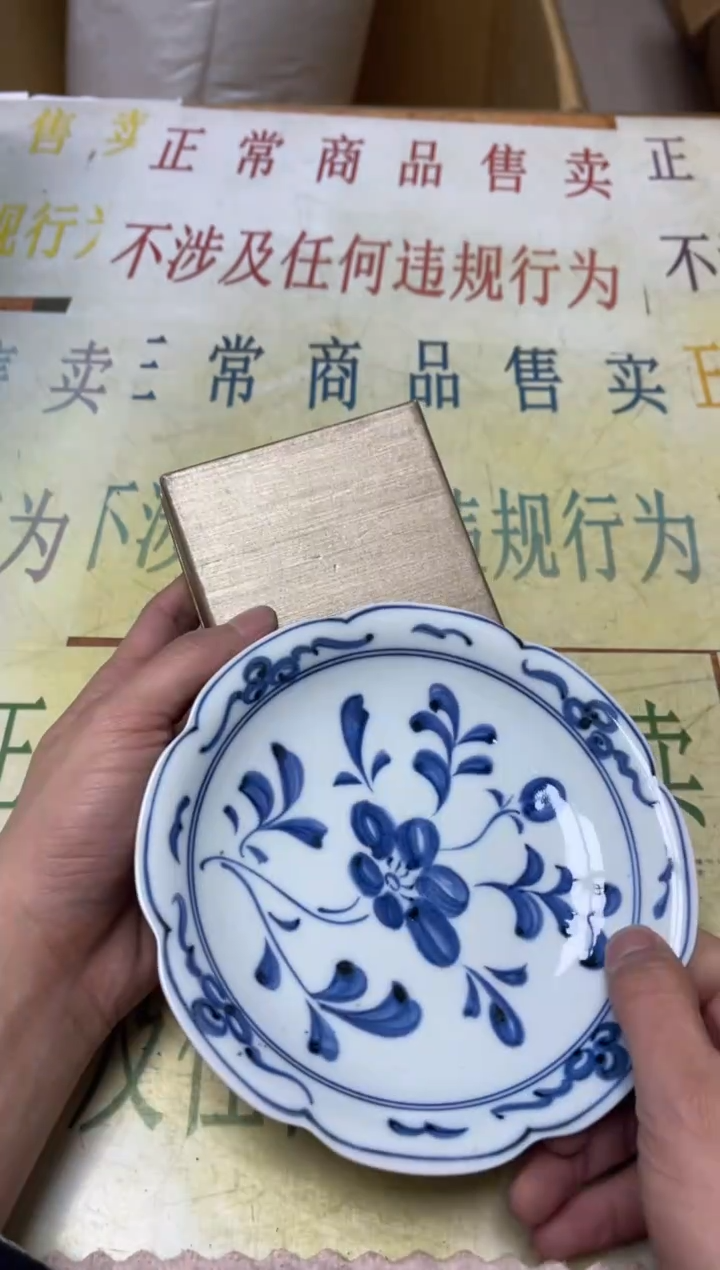 售卖 正常商品售卖 正
规行为 不涉及任何违规行为 不
售卖 正常商品售卖 正
为 不涉 违规行为
正 卖
及任